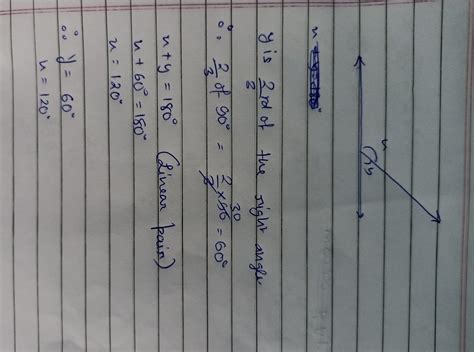 x y
x
y is 2/3 rd of the right angle
∴ 2/3 of 90° = 2/3 × 90 30 = 60°
x + y = 180° (Linear pair)
x + 60° = 180°
x = 120°
∴ y = 60°
x = 120°